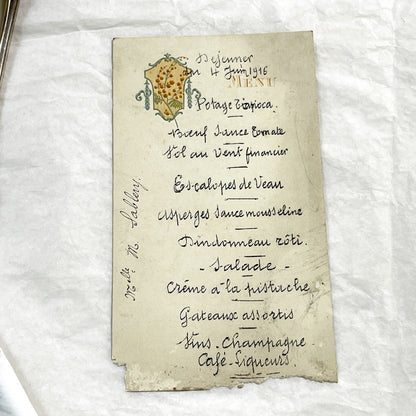 Dejeuner
du 4 Juin 1916
MENU
Potage Tapioca
Bœuf Sauce Tomate
Vol au Vent financier
Escalopes de Veau
Asperges Sauce mousseline
Dindonneau rôti.
- Salade -
Crême à la pistache
Gateaux assortis
Vins - Champagne
Café - Liqueurs.
Melle M.